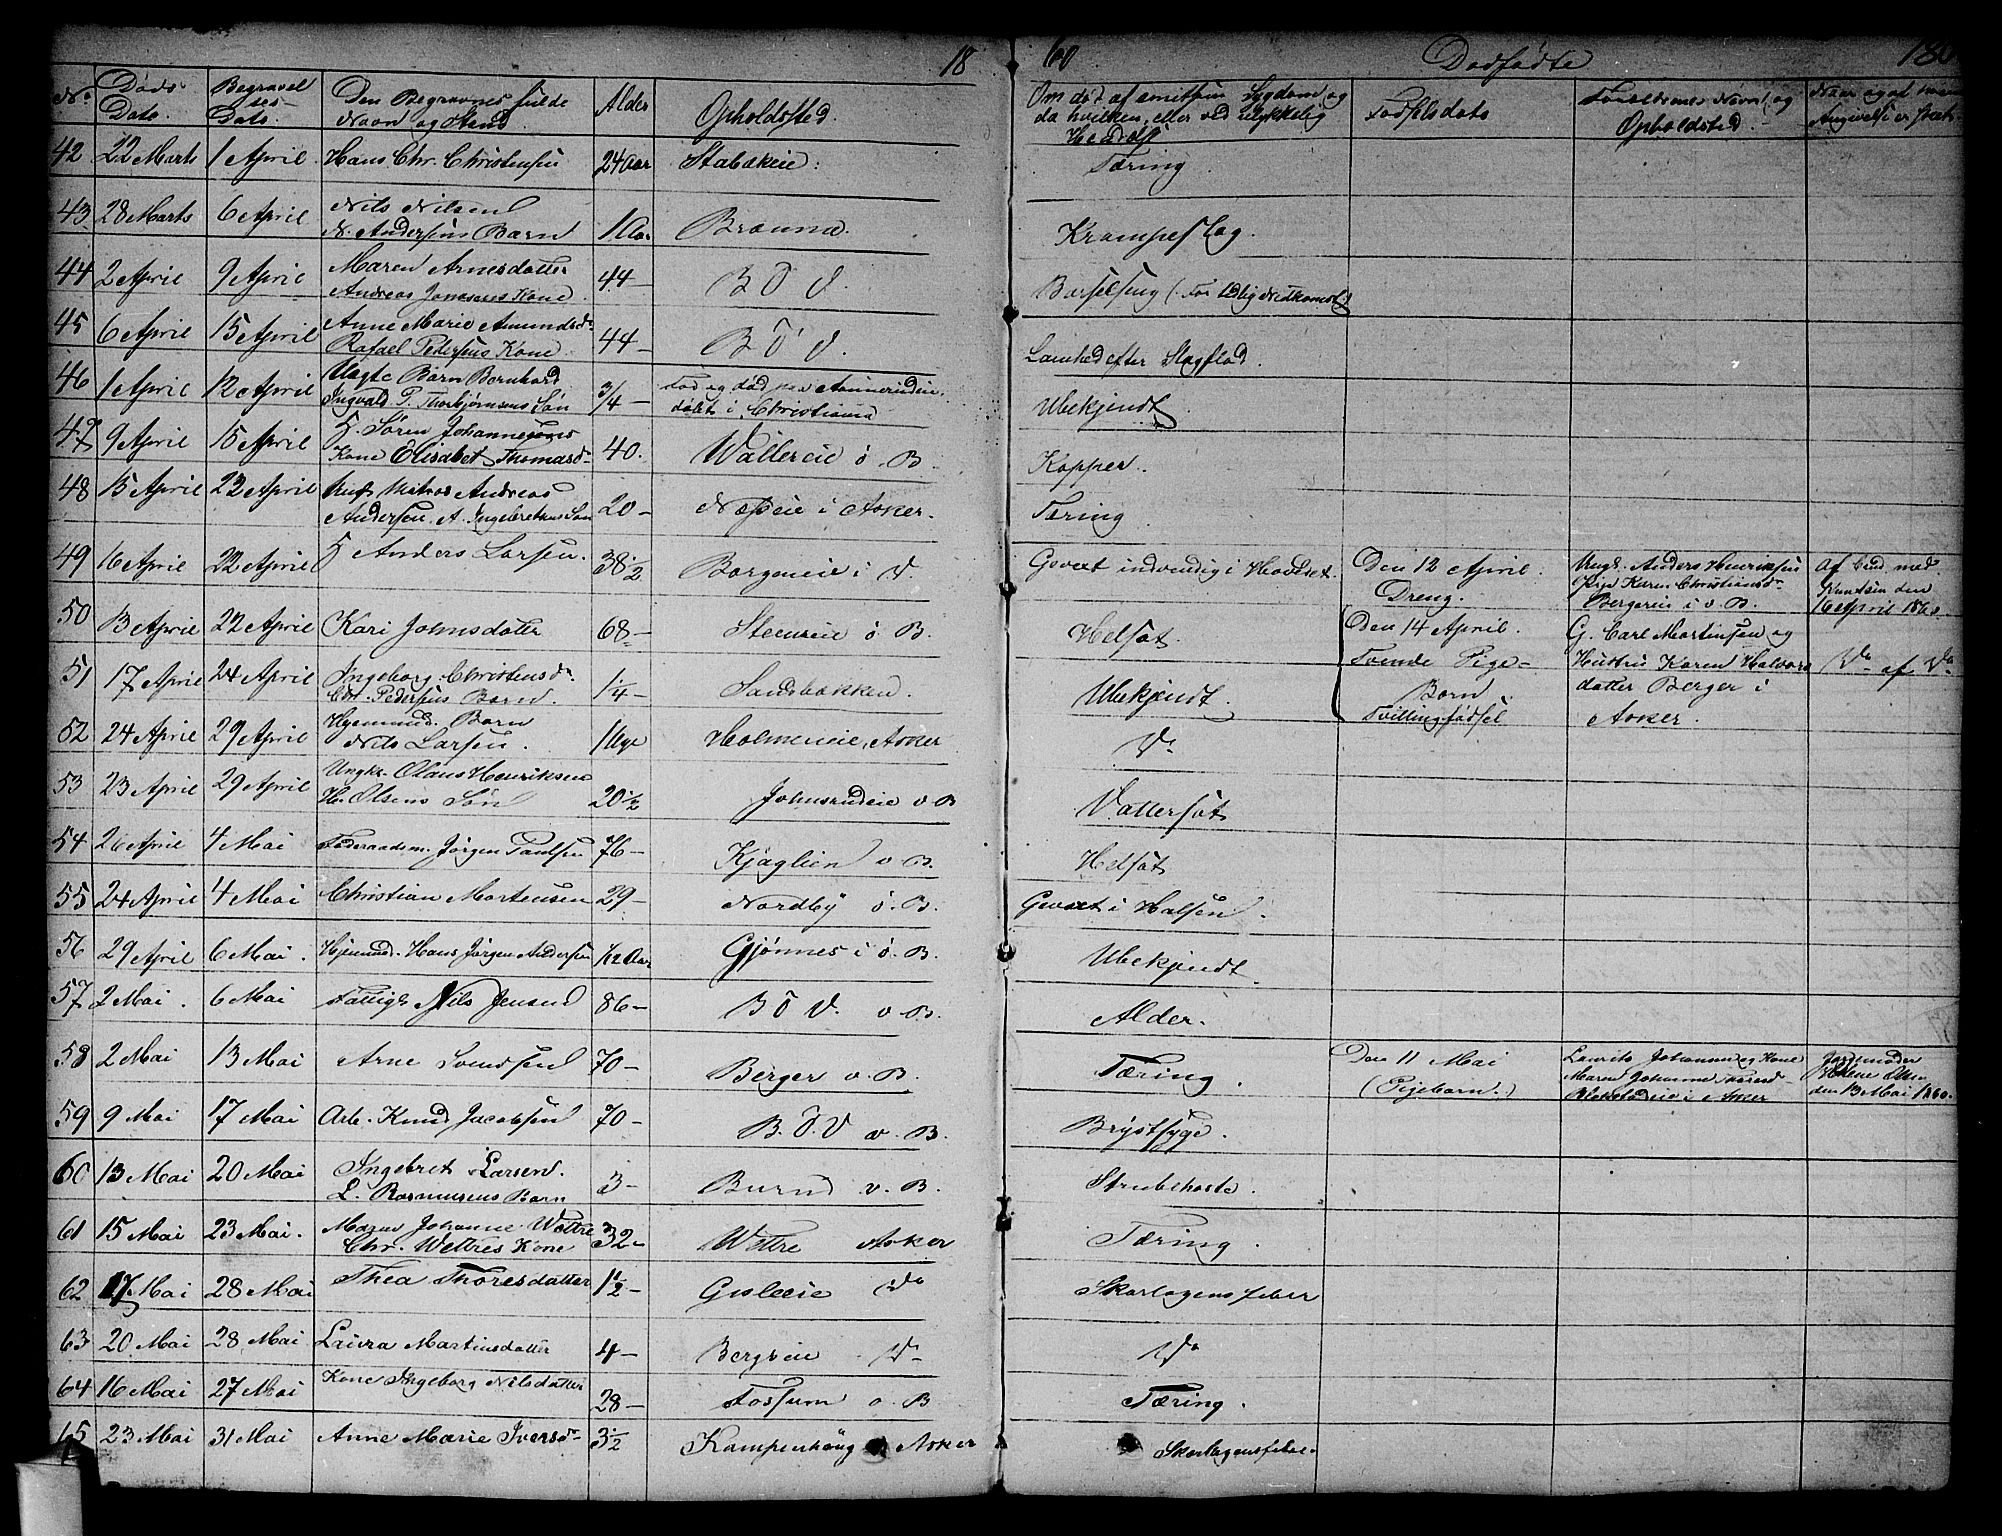 18 60 Dødfødte 180
No. Døds Dato. Begravelses Dato. Den Begravnes fulde Navn og Stand. Alder Opholdssted. Om død af smitsom Sygdom og da hvilken, eller ved ulykkelig Hendelse Fødselsdato Forældrenes Navn og Opholdsted.
42 22 Marts 1 April Hans Chr. Christensen 24 Aar Stabækeie. Tæring.
43 28 Marts 6 April Nils Nilsen
N. Andersens Barn 1 Aar Krampeslag.
44 2 April 9 April Maren Arnesdatter
Andreas Kone. 44 – B Ö V. Barselseng (for tidlig Nedkomst.)
45 6 April 15 April Anne Marie Amundsdr
Rafael Pedersens Kone. 44 – B Ö V. Lamhed efter Slagflod.
46 1 April 12 April Uægte Barn Bernhard
Ingvald P. Thorbjørnsens Søn 3/4 – Fød og død paa
døbt i Christiania Ubekjendt.
47 9 April 15 April G. Søren Johannesens
Kone Elisabet Thomasdr 40. Wallereie ö. B. Kopper.
48 15 April 22 April Ungk. Matros Andreas
Andersen, A. Ingebretsens Søn 20 – Næseie i Asker. Tæring.
49 16 April 22 April G Anders Larsen. 38 1/2 Borgeneie i V. Gevext indvendig i Hovedet. Den 12 April. Ungk. Anders Henriksen Af Bud med
Dreng. Pige Karen Christiansdr Knutsen den
Bergereie i v. B. 16 April 1860.
50 13 April 22 April Kari Johnsdatter 68 – Steenseie ö. B. Helsot. Den 14 April. G. Carl Martinsen og
Tvende Pige- Hustru Karen Halvors Do af Do
51 17 April 24 April Ingeborg Christensdr
Chr. Pedersens Barn. 1/4 – Sandbakken. Ubekjendt. Børn datter Berger i
Tvillingfødsel Asker.
52 24 April 29 April Hjemmd. Barn
Nils Larsen. 1 Uge Holmeneie, Asker Do
53 23 April 29 April Ungkr. Olaus Henriksen
H. Olsens Søn 20 1/2 Johnsrudeie v B Vattersot
54 26 April 4 Mai Føderaadsm. Jørgen Paulsen 76 – v B. Helsot
55 24 April 4 Mai Christian Mortensen 29 – Nordby ö. B. Gevext i Halsen.
56 29 April 6 Mai. Hjemmd. Hans Jørgen Andersen 1/12 Aar Gjønnes i ö. B. Ubekjendt
57 2 Mai. 6 Mai Fattigl. Nils Jensen 86 – B Ö V. v. B. Alder.
58 2 Mai 13 Mai Arne Svendsen 70 – Berger v. B. Tæring. Den 11 Mai Laurits Johansen og Kone Jordemoder
(Pigebarn.) Maren Johanne Helene Olsen
i Asker den 13 Mai 1860.
59 9 Mai 17 Mai Arb. Knud Jacobsen 70 – B. Ö. V v. B. Brystsyge.
60 13 Mai 20 Mai Ingebret Larsen.
L. Rasmusens Barn 3 – Burud v. B. Strubehoste.
61 15 Mai 23 Mai. Maren Johanne Wettre
Chr. Wettres Kone 32 – Wettre Asker Tæring.
62 17 Mai 28 Mai Thea Thoresdatter 1 1/2 – Gisleeie Do Skarlagensfeber
63 20 Mai 28 Mai Laura Martinsdatter 4 – Bergseie Do Do
64 16 Mai 27 Mai Kone Ingeborg Nilsdatter 28 – Fossum v. B Tæring.
65 23 Mai 31 Mai Anne Marie Iversdr 3 1/2 Kampenhaug Asker Skarlagensfeber.